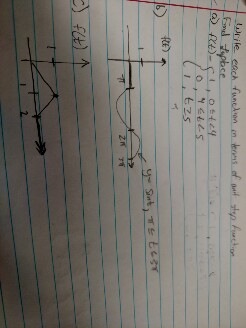 Write each function in terms of unit step function
Find Laplace
a) f(t) = { 1, 0≤t<4
0, 4≤t<5
1, t≥5
b) f(t)
1
π 2π 3π
y= sint, π≤t≤3π
c) f(t)
1
1 2